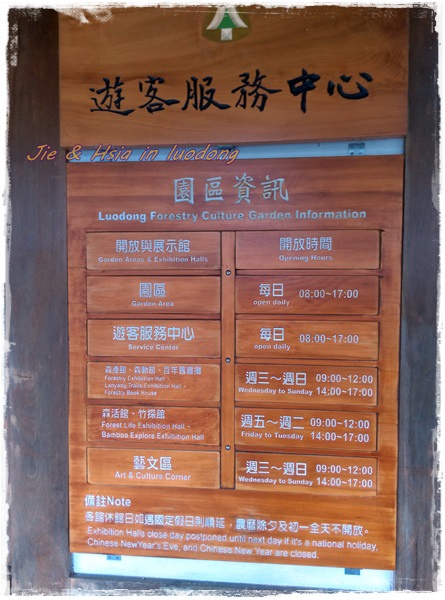 遊客服務中心
Jie & Hsia in luodong
園區資訊
Luodong Forestry Culture Garden Information
開放與展示館
Garden Areas & Exhibition Halls
開放時間
Opening Hours
園區
Garden Area
每日 08:00~17:00
open daily
遊客服務中心
Service Center
每日 08:00~17:00
open daily
森產館、森動館、百年舊書櫃
Forestry Exhibition Hall、
Lanyang Trails Exhibition Hall、
Forestry Book House
週三~週日 09:00~12:00
Wednesday to Sunday 14:00~17:00
森活館、竹探館
Forest Life Exhibition Hall、
Bamboo Explore Exhibition Hall
週五~週二 09:00~12:00
Friday to Tuesday 14:00~17:00
藝文區
Art & Culture Corner
週三~週日 09:00~12:00
Wednesday to Sunday 14:00~17:00
備註Note
各館休館日如遇國定假日則順延，農曆除夕及初一全天不開放。
Exhibition Halls close day postponed until next day if it's a national holiday,
Chinese NewYear's Eve, and Chinese New Year are closed.